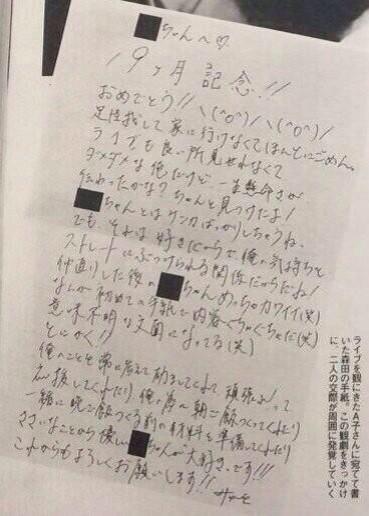 ちゃんへ♡
19ヶ月記念!!
おめでとう!! \(^o^)/ \(^o^)/
足怪我して家に行けなくてほんとにごめん。
ライブも良い所見せれなくて
ダメダメな俺だけど、一生懸命さが
伝わったかな?ちゃんと見つけたよ!
ちゃんとはケンカばっかりしちゃうね、
でも、それは好きだからで俺の気持ちを
ストレートにぶつけられる関係だからだね!
仲直りした後の ちゃんめっちゃカワイイ(笑)
なんか初めての手紙で内容ぐちゃぐちゃだ(笑)
意味不明な文面になってる(笑)
とにかく!!
俺のことを常に考えて動いてくれて、頑張れ!って
応援してくれたり、俺の為に朝ご飯つくってくれたり
一緒に晩ご飯つくる前の材料を準備してくれたり
ささいなことから優しい ちゃんが大好きです!!!
これからもよろしくお願いします!!
ライブを観にきたA子さんに宛てて書
いた森田の手紙。この観劇をきっかけ
に、二人の交際が周囲に発覚していく